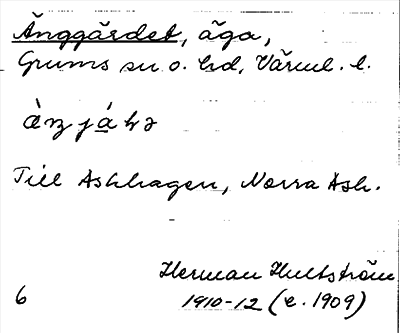 Änggärdet, äga,
Grums sn o. hd, Värml. l.
Till Ashhagen, Norra Ash.
Herman Hultström
6 1910-12 (e. 1909)